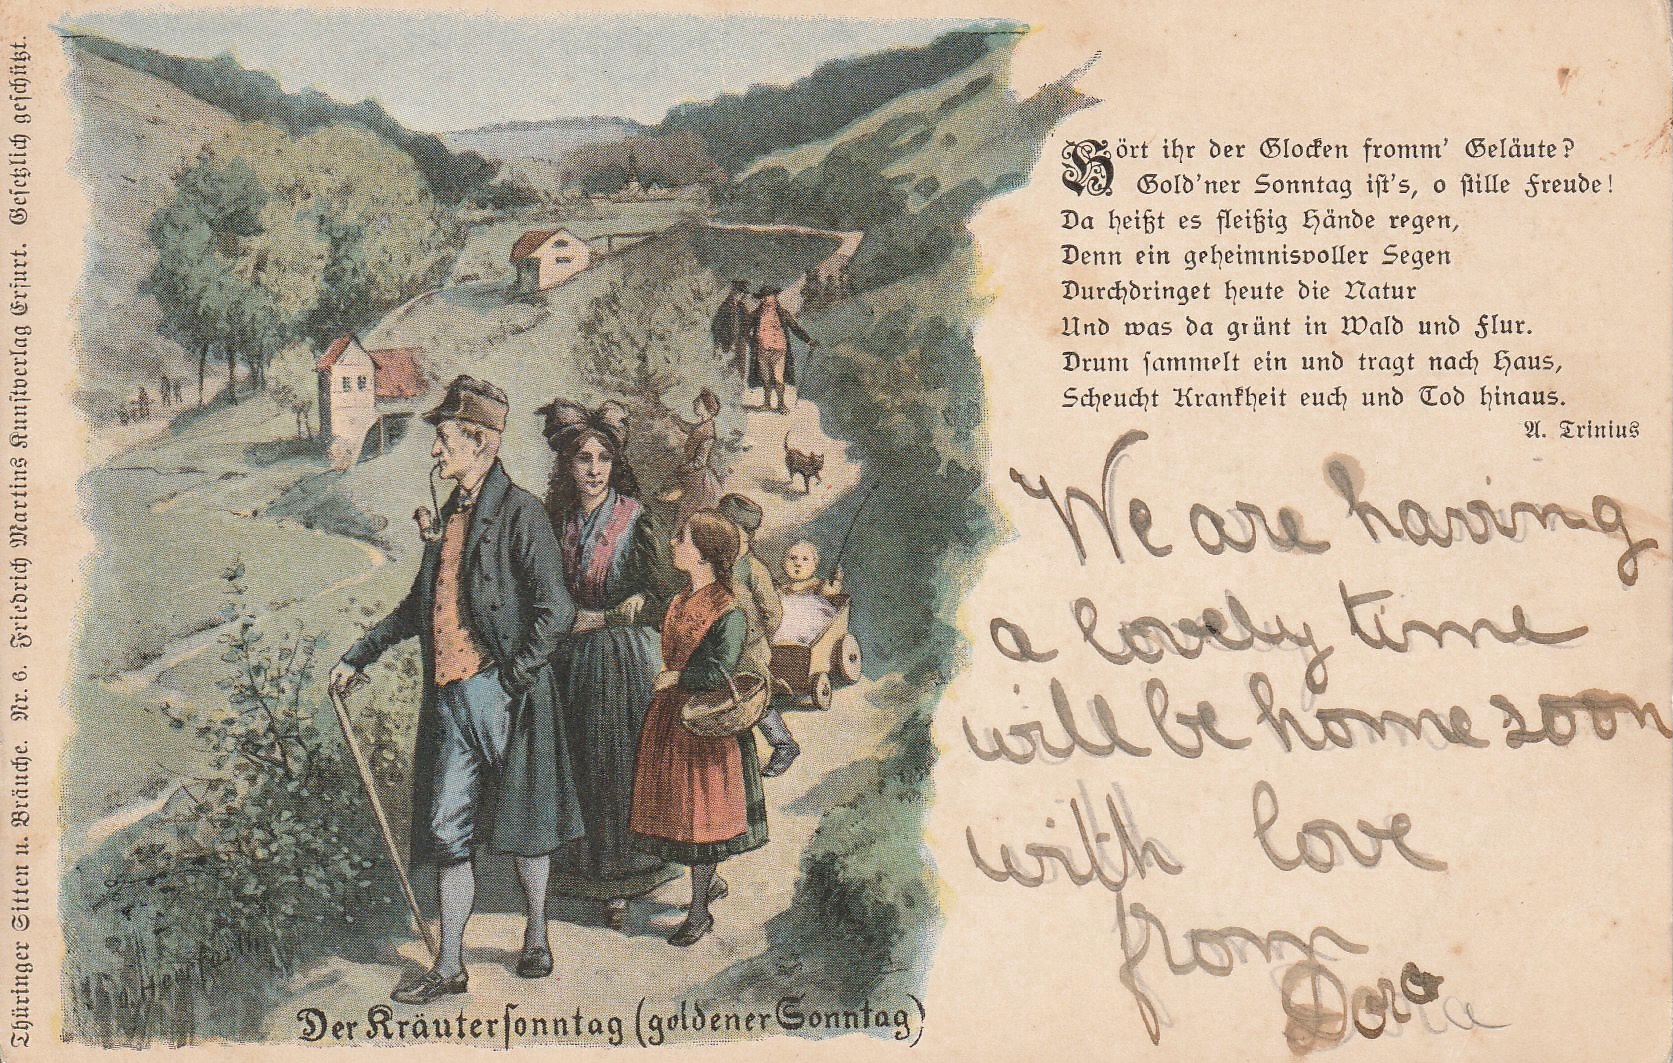 Thüringer Sitten u. Bräuche. Nr. 6. Friedrich Martins Kunstverlag Erfurt. Gesetzlich geschützt.
Hört ihr der Glocken fromm' Geläute?
Gold'ner Sonntag ist's, o stille Freude!
Da heißt es fleißig Hände regen,
Denn ein geheimnisvoller Segen
Durchdringet heute die Natur
Und was da grünt in Wald und Flur.
Drum sammelt ein und tragt nach Haus,
Scheucht Krankheit euch und Tod hinaus.
A. Trinius
We are having
a lovely time
will be home soon
with love
from
Dora
Der Kräutersonntag (goldener Sonntag)